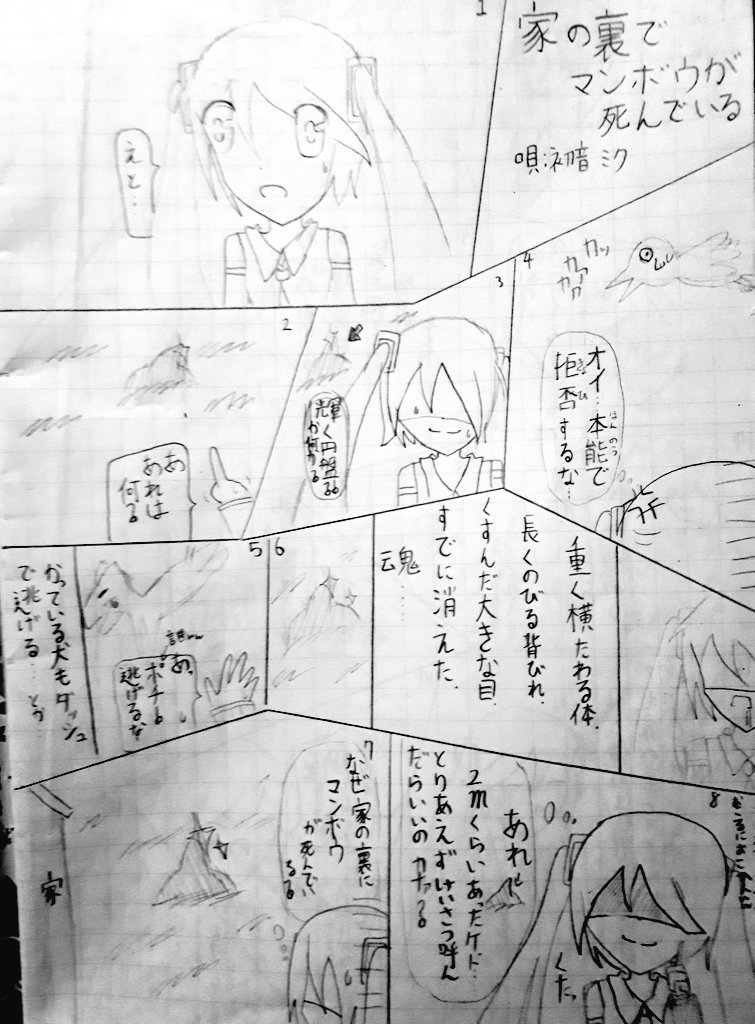 家の裏で
マンボウが
死んでいる
唄:初音ミク
1
えと…
2
あ
あれは
何る
3
輝く円盤る。
か何かる
4
カッ
カァ
カァ
オイ…本能で
ほんのう
拒否するな…
きょひ
重く横たわる体、
長くのびる背びれ、
くすんだ大きな目、
すでに消えた、
魂……
6
5
あっ
ポチも
逃げるな
かっている犬もダッシュ
で逃げる…とか
7
なぜ家の裏に
マンボウ
が死んでい
るる
家
8
あれ
2mくらいあったケド…
とりあえずけいさつ呼ん
だらいいのカナァ?る
くたっ